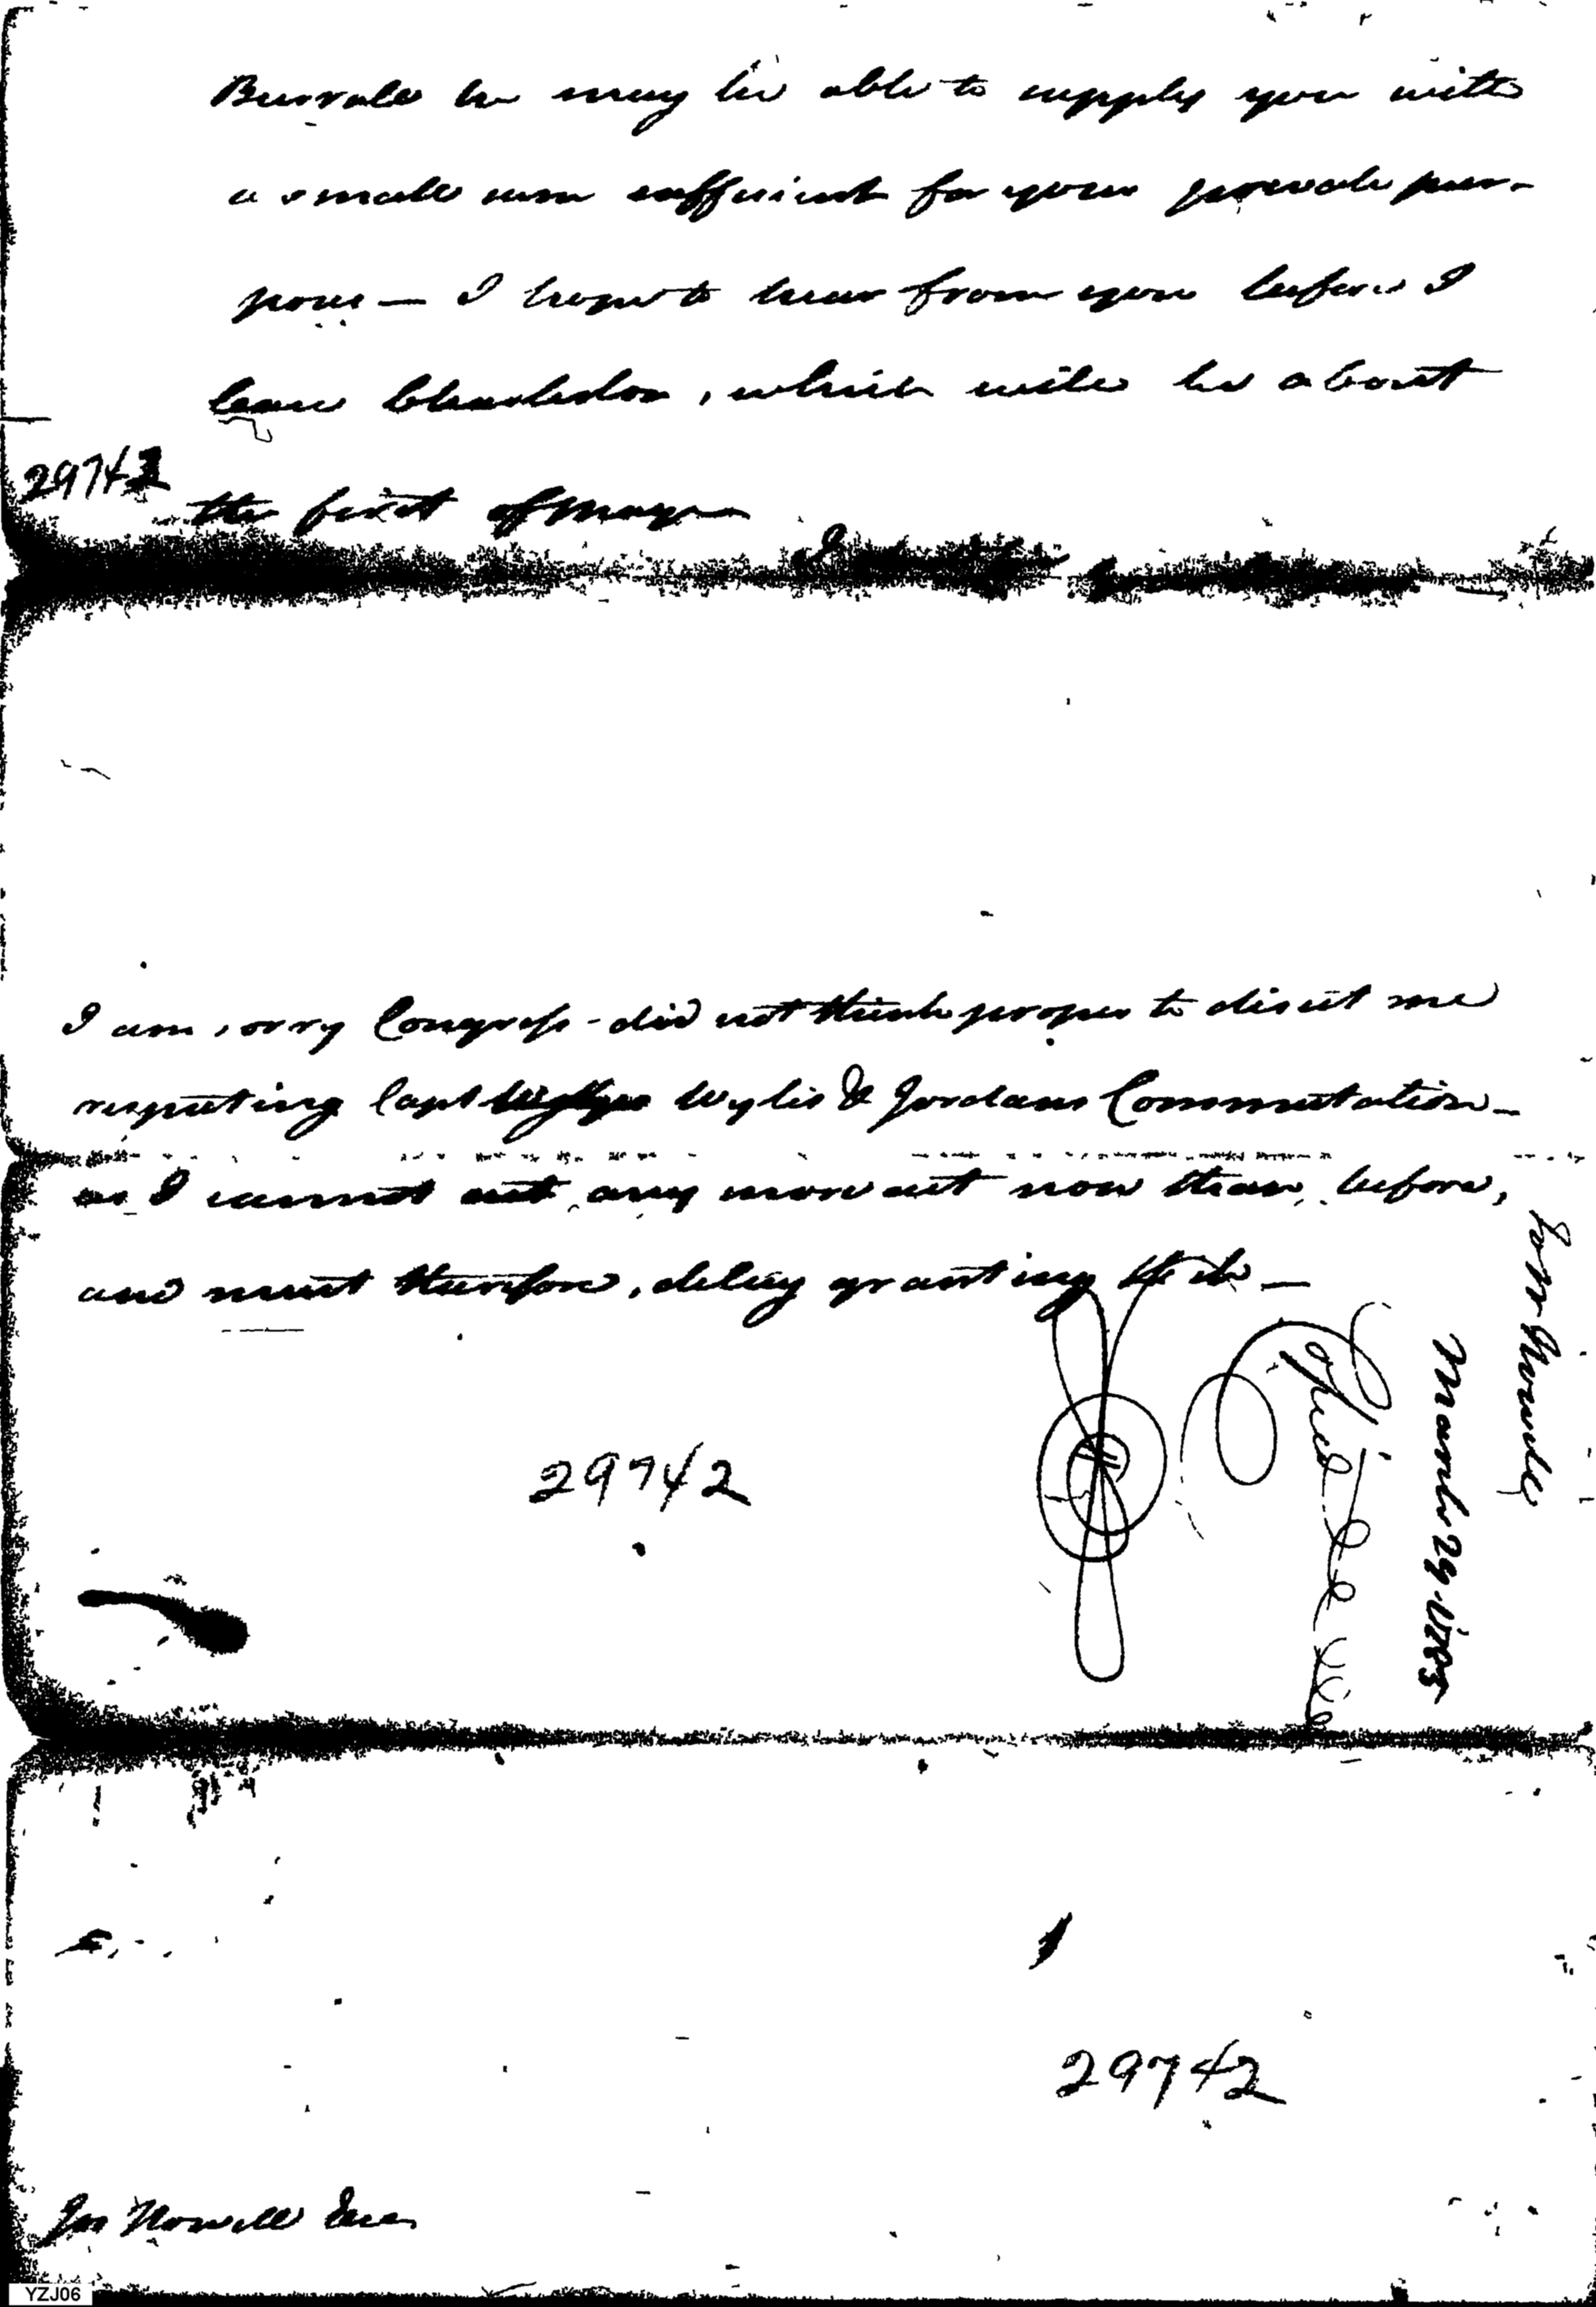 Burrall he may be able to supply you with
a small sum sufficient for your private pur-
poses — I hope to hear from you before I
leave Charleston, which will be about
29742
the first of May
I am
I am sorry Congress did not think proper to direct me
respecting Capt Wylie & Jordans Commutation —
as I cannot act any more now than before,
and must therefore, delay granting it —
29742
Copied
March 29. 1785
John Howell
29742
Jos Howell Esqr
YZJ06